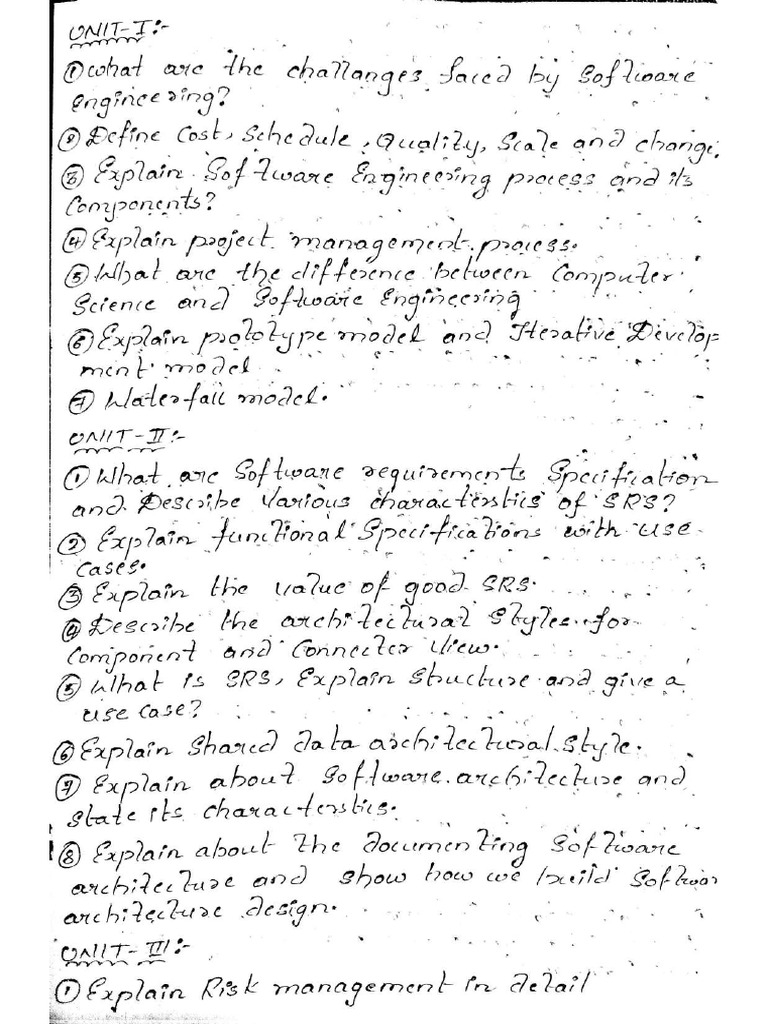 UNIT-I:-
① What are the challanges faced by Software
engineering?
② Define Cost, Schedule, Quality, Scale and change.
③ Explain Software Engineering process and its
Components?
④ Explain project management process.
⑤ What are the difference between Computer
Science and Software Engineering
⑥ Explain prototype model and Iterative Develop
ment model
⑦ Waterfall model.
UNIT-II:-
① What are Software requirements Specification
and Describe various characterstics of SRS?
② Explain functional Specifications with use
cases.
③ Explain the value of good SRS.
④ Describe the architectural styles for
Component and Connecter view.
⑤ What is SRS, Explain structure and give a
use case?
⑥ Explain shared data architectural style.
⑦ Explain about Software architecture and
state its characterstics.
⑧ Explain about the documenting Software
architecture and show how we build Softwar
architecture design.
UNIT-III:-
① Explain Risk management in detail